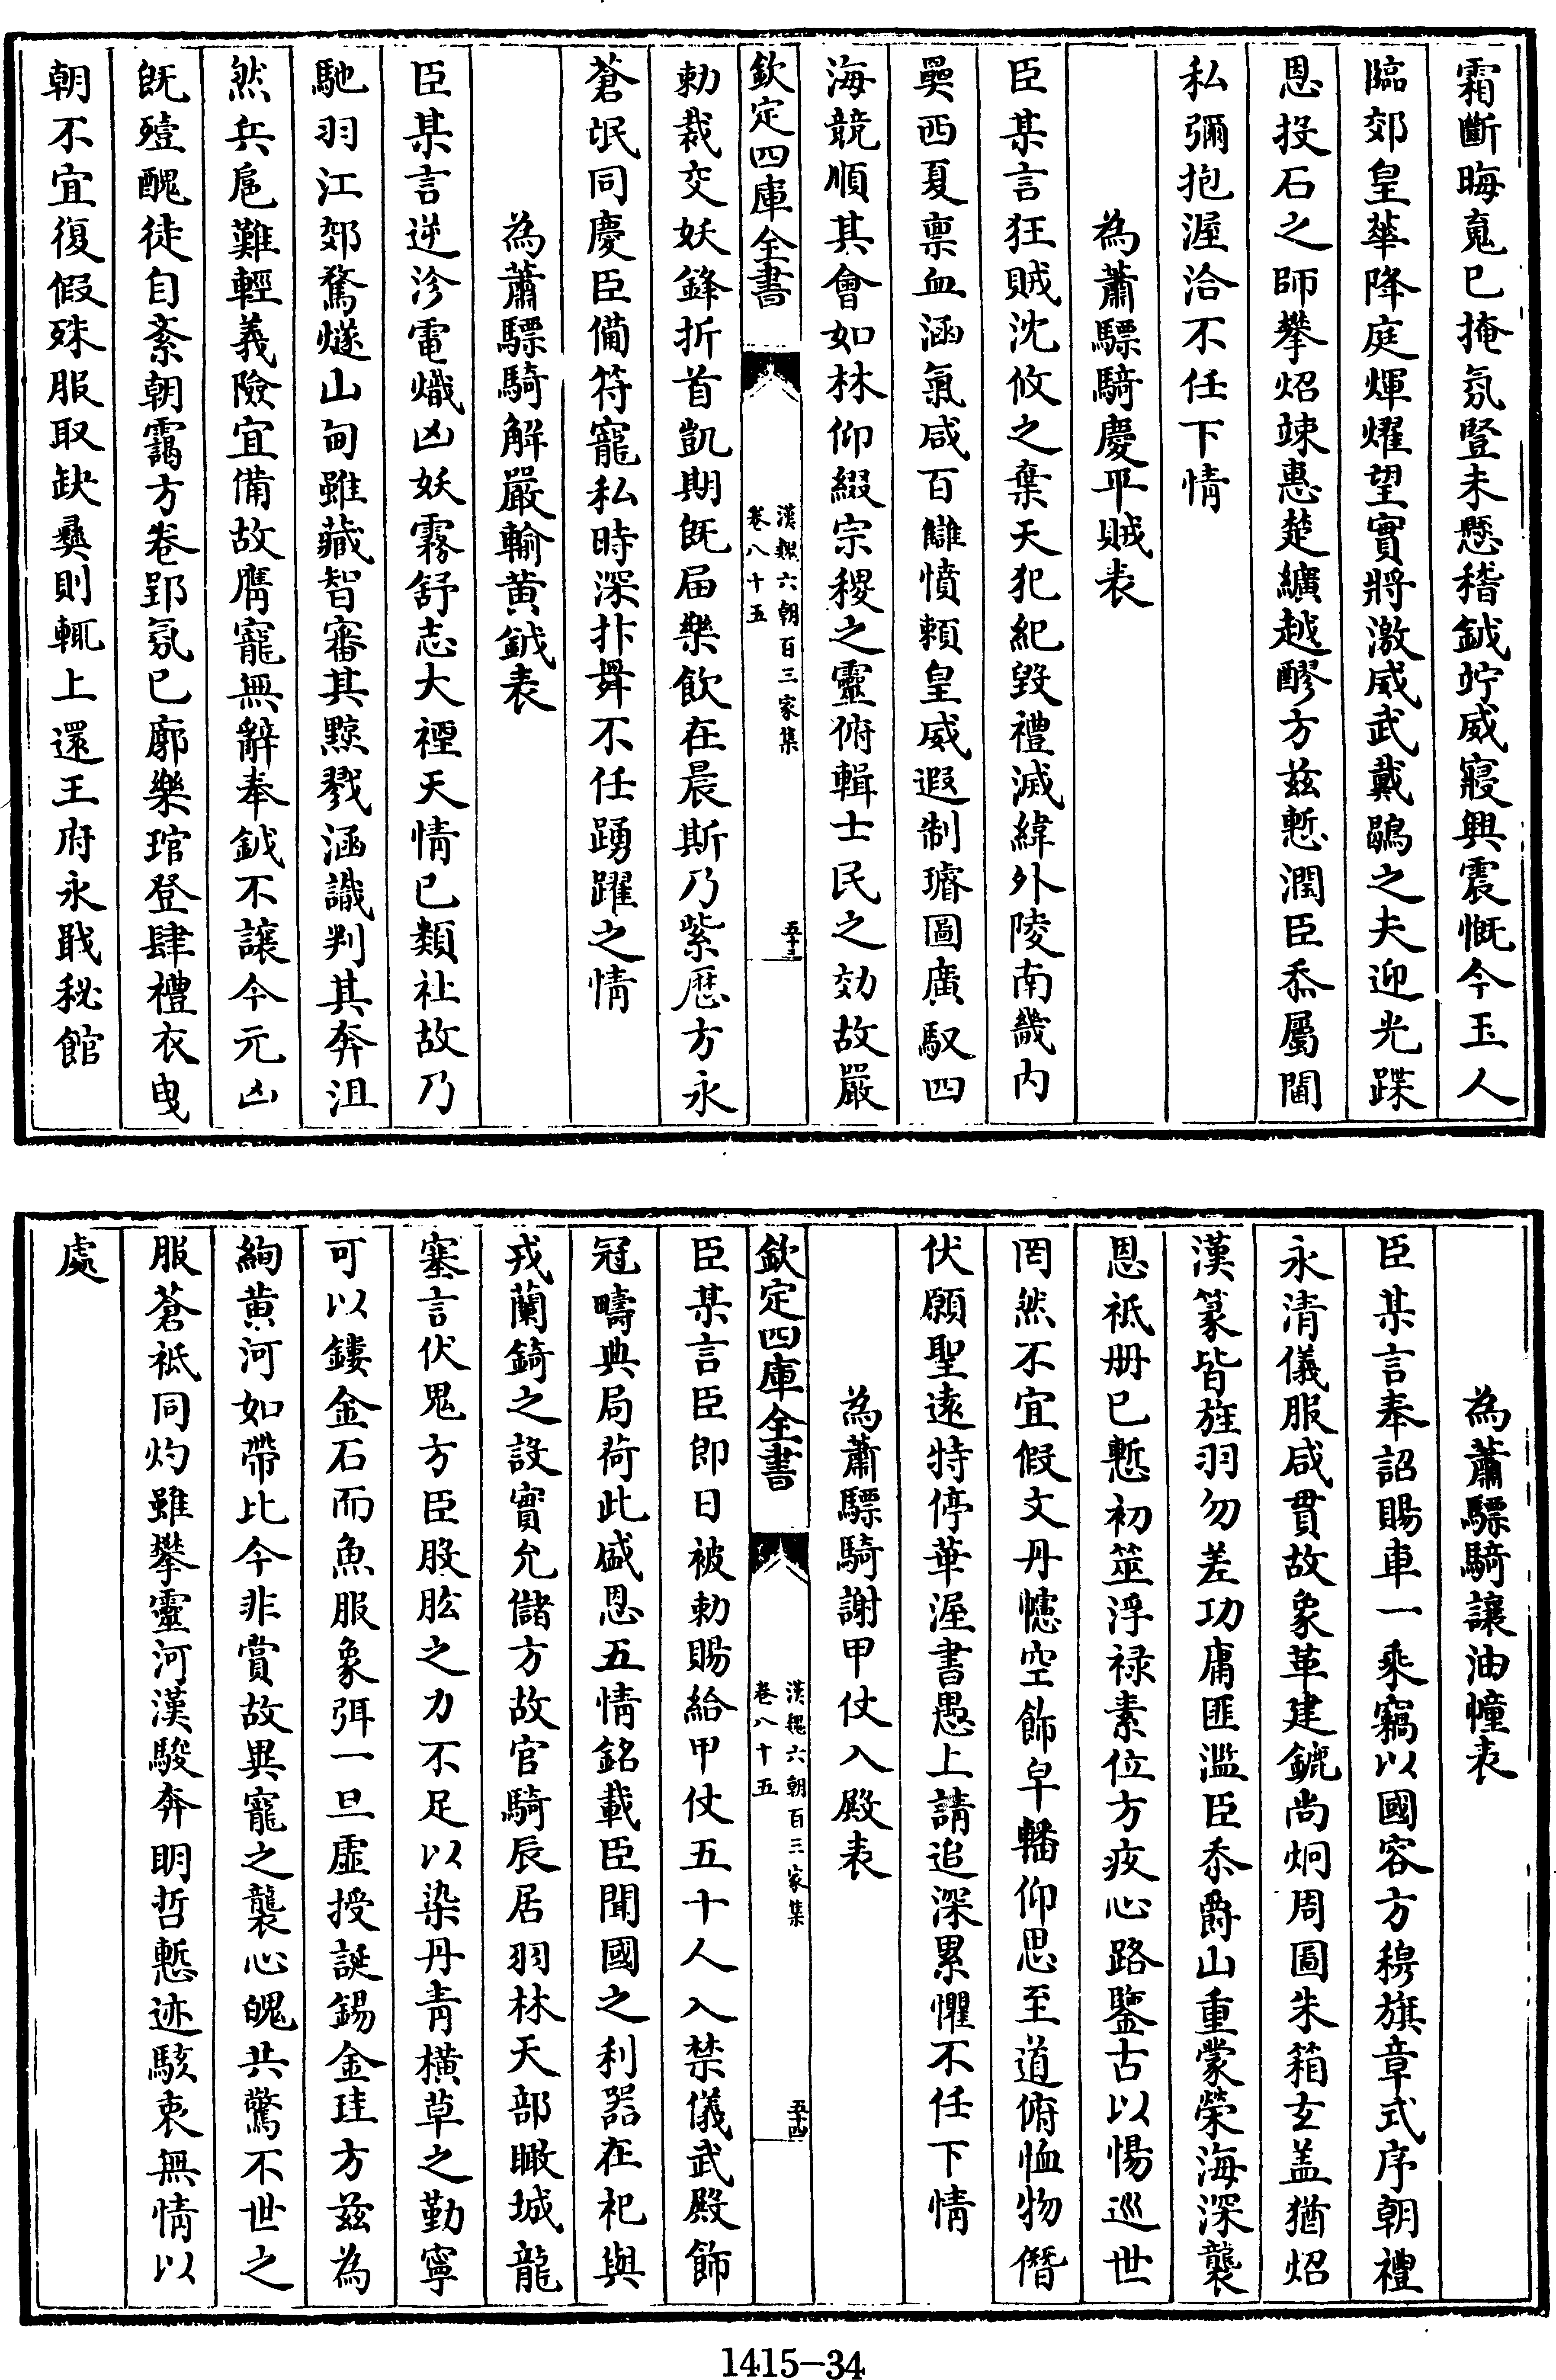 霜斷晦嵬已掩氛豎未懸稽鉞竚威寢興震慨今玉人
臨郊皇華降庭煇燿望實將激威武戴鶡之夫迎光蹀
恩投石之師攀炤竦惠楚纊越醪方茲慙潤臣忝屬閫
私彌抱渥洽不任下情
為蕭驃騎慶平賊表
臣某言狂賊沈攸之棄天犯紀毀禮滅緯外陵南畿内
奰西夏禀血涵氣咸百讎憤頼皇威遐制璿圖廣馭四
海競順其會如林仰綴宗稷之靈俯輯士民之効故嚴
欽定四庫全書
漢魏六朝百三家集
卷八十五
五十三
勅裁交妖鋒折首凱期旣届樂飲在晨斯乃紫厯方永
蒼氓同慶臣備符寵私時深抃舞不任踴躍之情
為蕭驃騎解嚴輸黄鉞表
臣某言逆沴電熾凶妖霧舒志大禋天情已類社故乃
馳羽江郊驁燧山甸雖藏智審其黥戮涵識判其奔沮
然兵扈難輕義險宜備故膺寵無辭奉鉞不讓今元凶
旣殪醜徒自紊朝靄方卷郢氛已廓樂琯登肆禮衣曳
朝不宜復假殊服取缺彜則輒上還王府永戢秘館
為蕭驃騎讓油幢表
臣某言奉詔賜車一乘竊以國容方穆旗章式序朝禮
永清儀服咸貫故象革建鑣尚炯周圖朱箱玄盖猶炤
漢篆皆旌羽勿差功庸匪濫臣忝爵山重蒙榮海深襲
恩祇册已慙初筮浮禄素位方疚心路鑒古以惕巡世
罔然不宜假文丹幰空飾皁轓仰思至道俯恤物僭
伏願聖遠特停華渥書愚上請追深累懼不任下情
為蕭驃騎謝甲仗入殿表
欽定四庫全書
漢魏六朝百三家集
卷八十五
五十四
臣某言臣即日被勅賜給甲仗五十人入禁儀武殿飾
冠疇典局荷此盛恩五情銘載臣聞國之利器在祀與
戎蘭錡之設實允儲方故官騎辰居羽林天部瞰城龍
塞言伏鬼方臣股肱之力不足以染丹青横草之勤寧
可以鏤金石而魚服象弭一旦虚授誕錫金珪方茲為
絢黄河如帶比今非賞故異寵之襲心魄共驚不世之
服蒼祇同灼雖攀靈河漢駿奔明哲慙迹駭衷無情以
處
1415-34